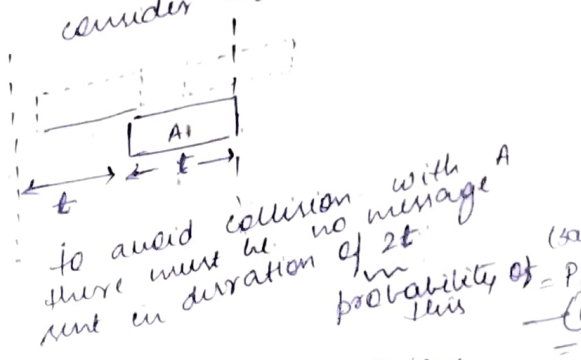 consider
A1
t
t
to avoid collision with A
there must be no message
sent in duration of 2t
probability of = P
this